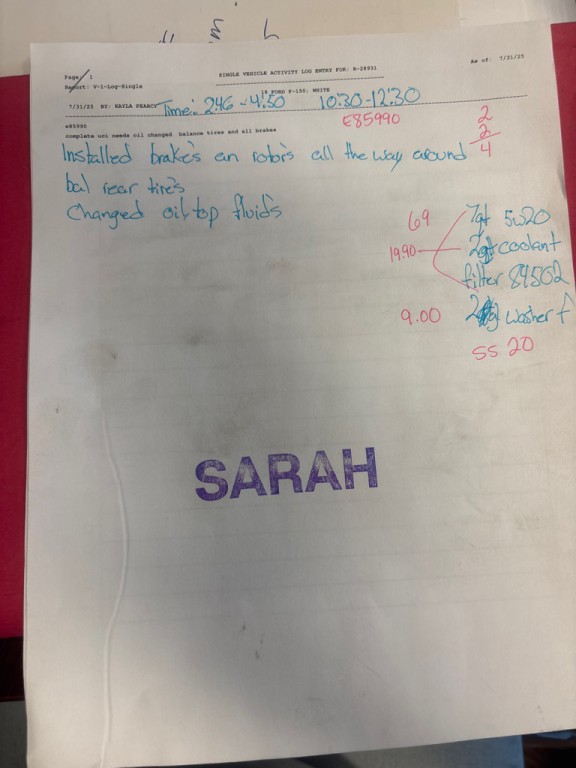 As of: 7/31/25
Page: 1
SINGLE VEHICLE ACTIVITY LOG ENTRY FOR: R-28931
Report: V-1-Log-Single
18 FORD F-150; WHITE
7/31/25 BY: KAYLA PEARCY Time: 2:46 - 4:50 10:30-12:30
E85990
2
2
4
e85990
complete uci needs oil changed balance tires and all brakes
Installed brakes an rotors all the way around
bal rear tires
Changed oil top fluids
69 7qt 5w20
19.90 2qt coolant
filter 84502
9.00 2 washer f
SS 20
SARAH